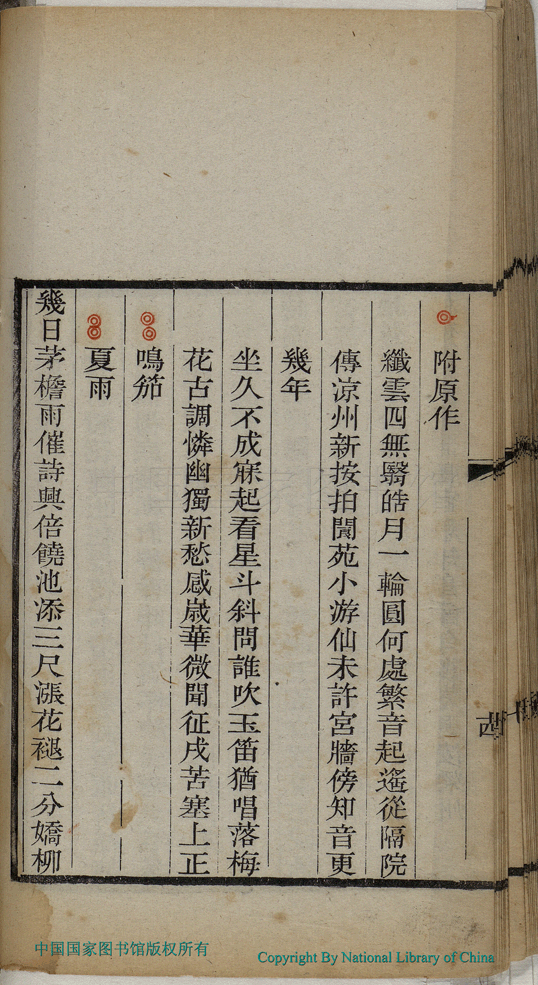 附原作
纖雲四無翳皓月一輪圓何處繁音起遙從隔院
傳凉州新按拍閬苑小游仙未許宮牆傍知音更
幾年
坐久不成寐起看星斗斜問誰吹玉笛猶唱落梅
花古調憐幽獨新愁感歲華微聞征戍苦塞上正
鳴笳
夏雨
幾日茅檐雨催詩興倍饒池添三尺漲花褪二分嬌柳
中国国家图书馆版权所有
Copyright By National Library of China